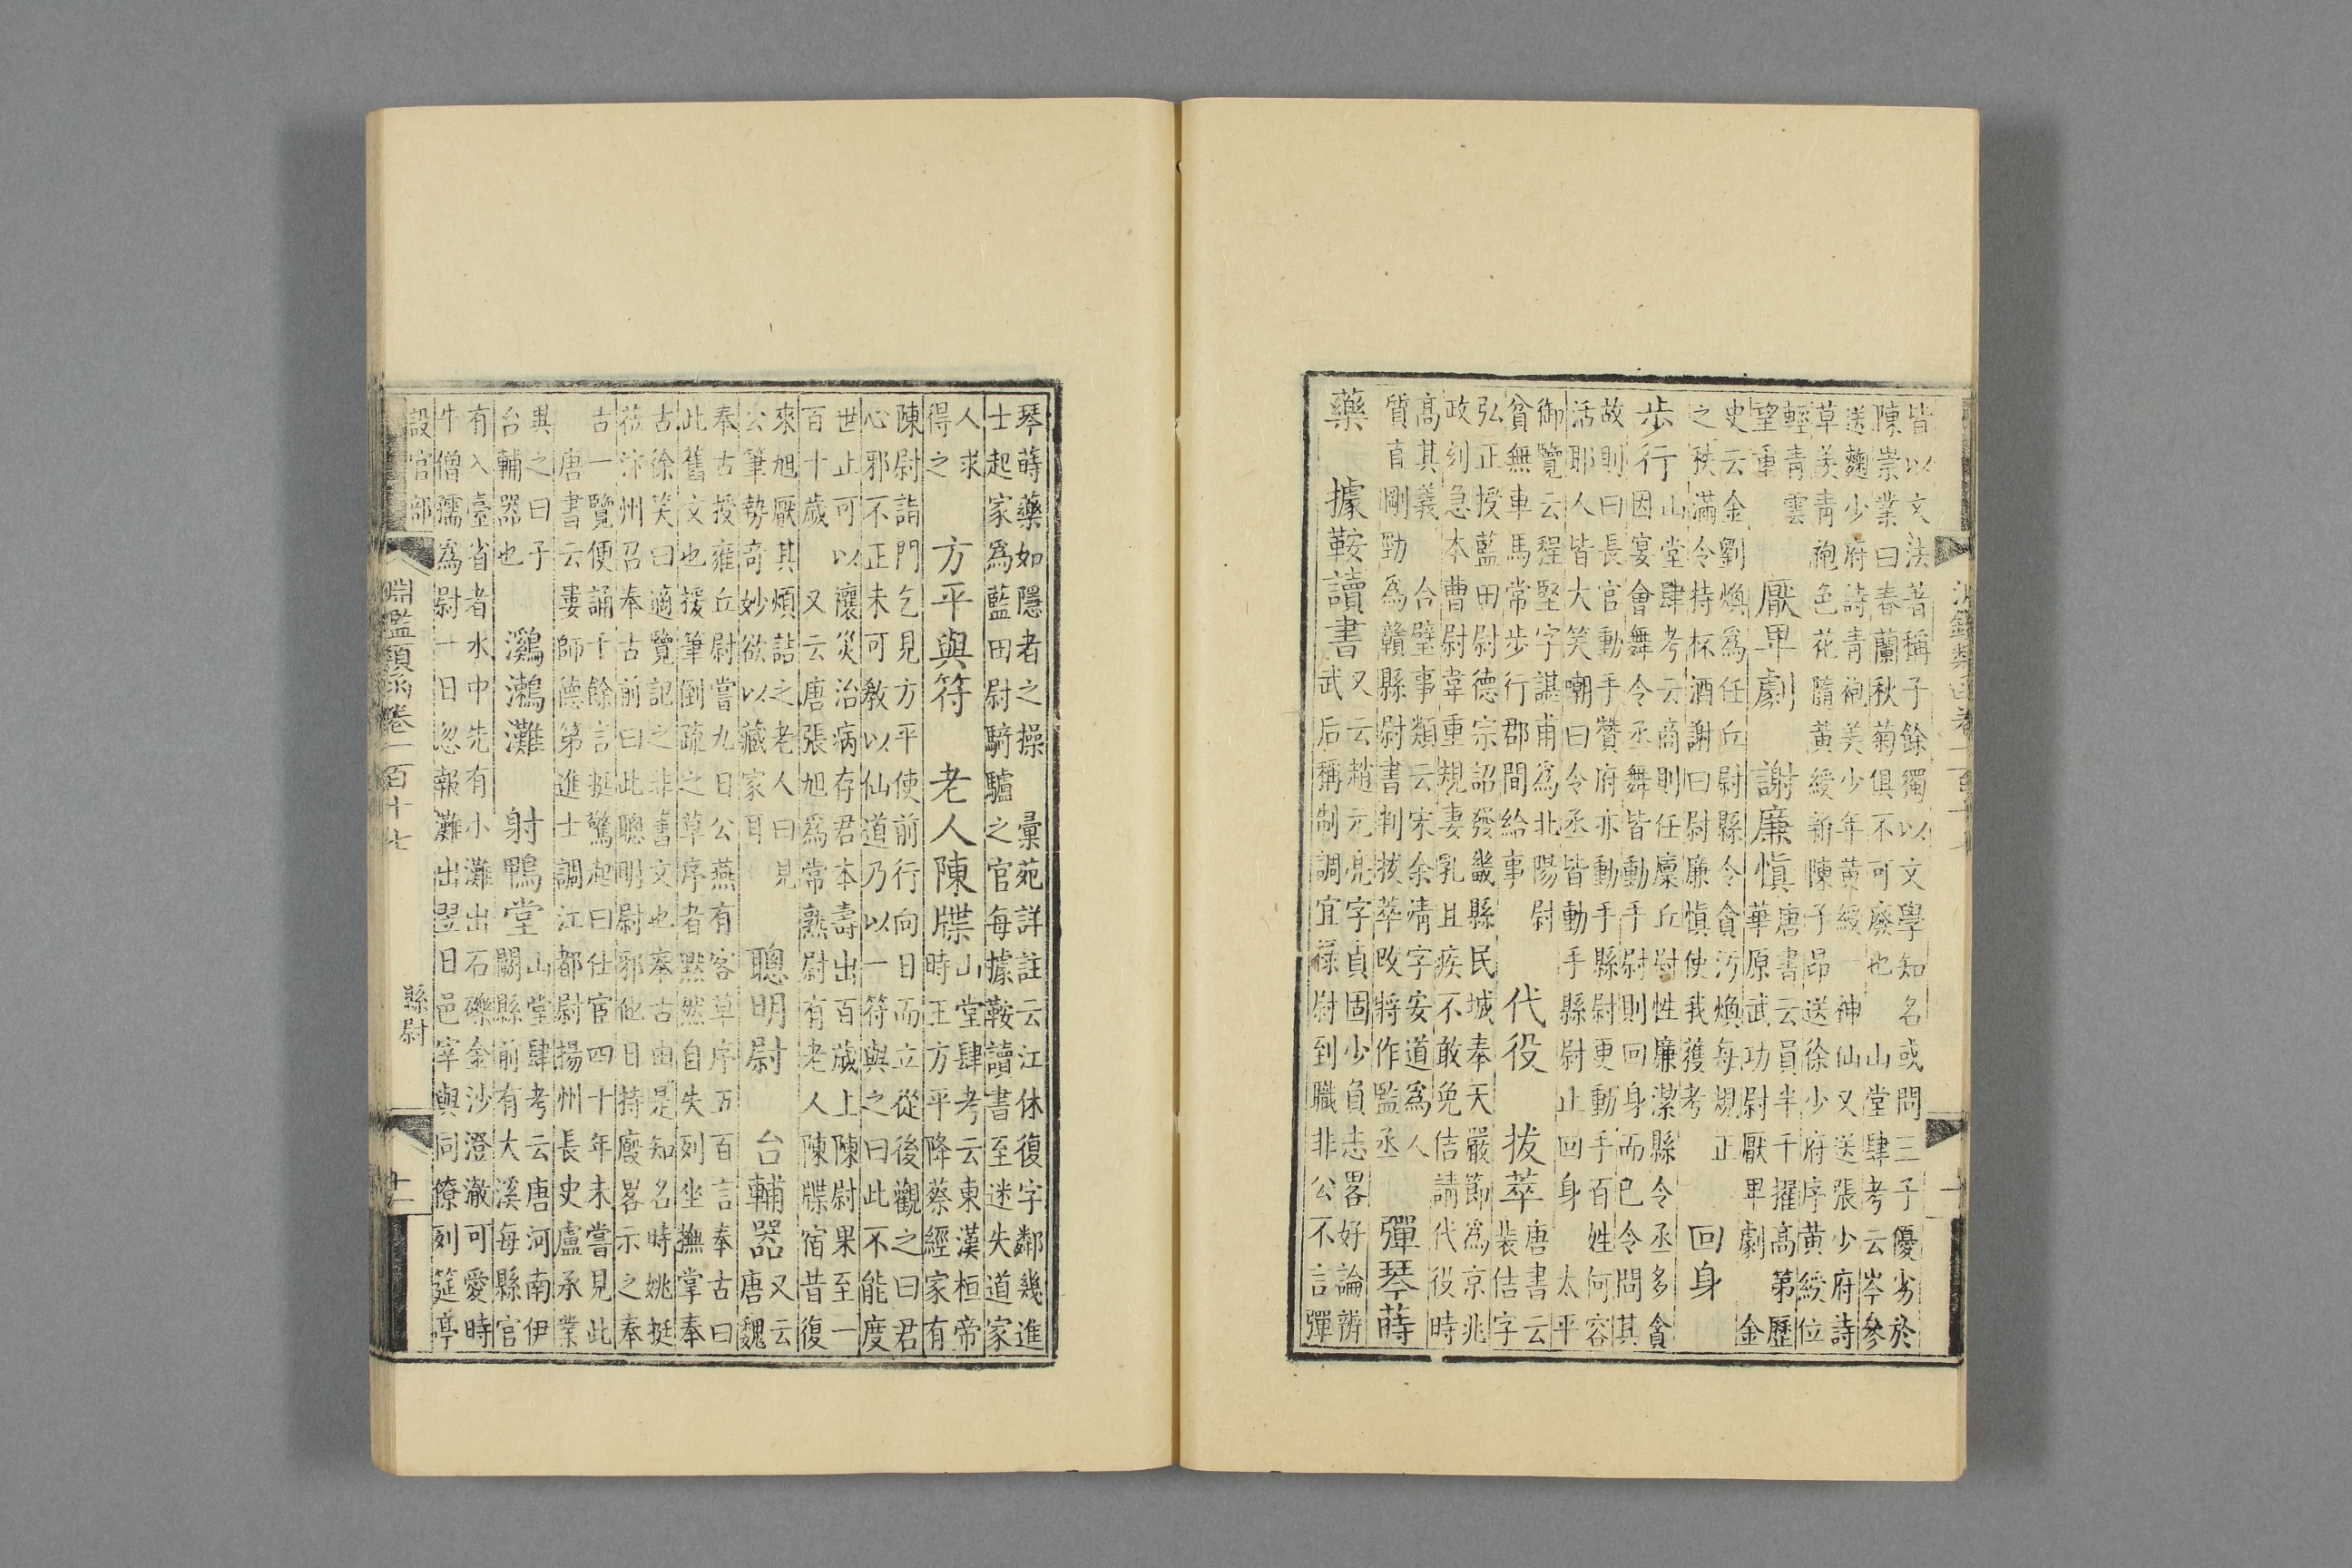 皆以文法著稱子餘獨以文學知名或問三子優劣於
陳崇業曰春蘭秋菊俱不可廢也 山堂肆考云岑參
送麴少府詩青袍美少年黄綬一神仙又送張少府詩
草羡青袍色花隨黄綬新陳子昂送徐少府序黄綬位
輕青雲
望重
厭卑劇 謝廉慎
唐書云員半千擢高第歷
華原武功尉厭卑劇 金
史云金劉煥爲任丘尉縣令貪汚煥每規正
之秩滿令持杯酒謝曰尉廉慎使我獲考
回身
步行
山堂肆考云商則任廩丘尉性廉潔縣令丞多貪
因宴會舞令丞舞皆動手尉則回身而已令問其
故則曰長官動手贊府亦動手縣尉更動手百姓何容
活耶人皆大笑嘲曰令丞皆動手縣尉止回身 太平
御覽云程堅字諶甫爲北陽尉
貧無車馬常步行郡間給事
代役 拔萃
唐書云
裴佶字
弘正授藍田尉德宗詔發畿縣民城奉天嚴節爲京兆
政刻急本曹尉韋重規妻乳且疾不敢免佶請代役時
高其義 合璧事類云宋余靖字安道爲人
質直剛勁爲贛縣尉書判拔萃改將作監丞
彈琴蒔
藥 據鞍讀書
又云趙元亮字貞固少負志畧好論辨
武后稱制調宜祿尉到職非公不言彈
琴蒔藥如隱者之操 彙苑詳註云江休復字鄰幾進
士起家爲藍田尉騎驢之官每據鞍讀書至迷失道家
人求
得之
方平與符 老人陳牒
山堂肆考云東漢桓帝
時王方平降蔡經家有
陳尉詣門乞見方平使前行向日而立從後觀之曰君
心邪不正未可教以仙道乃以一符與之曰此不能度
世止可以禳災治病存君本壽出百歲上陳尉果至一
百十歲 又云唐張旭爲常熟尉有老人陳牒宿昔復
來旭厭其煩詰之老人曰見
公筆勢奇妙欲以藏家耳
聰明尉 台輔器
又云
唐魏
奉古授雍丘尉嘗九日公燕有客草序五百言奉古曰
此舊文也援筆倒疏之草序者默然自失列坐撫掌奉
古徐笑曰適覽記之非舊文也奉古由是知名時姚挺
莅汴州召奉古前曰此聰明尉邪他日持廢畧示之奉
古一覽便誦千餘言挺驚起曰仕宦四十年未嘗見此
唐書云婁師德第進士調江都尉揚州長史盧承業
異之曰子
台輔器也
鸂鶒灘 射鴨堂
山堂肆考云唐河南伊
闕縣前有大溪每縣官
有入臺省者水中先有小灘出石礫金沙澄澈可愛時
牛僧孺爲尉一日忽報灘出翌日邑宰與同僚列筵亭
設官部
淵鑑類函卷一百十七
縣尉
十一